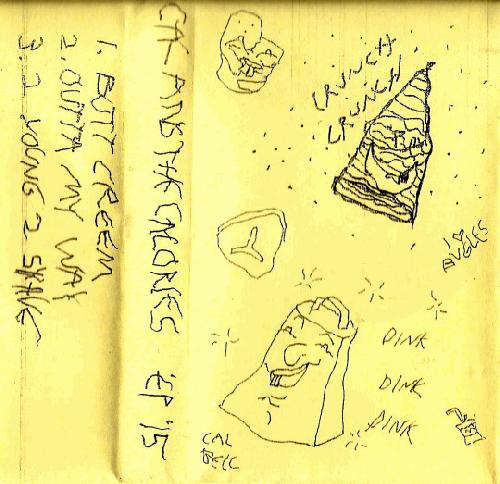 1. BUTT CREEM
2. OUTTA MY WAY
3. 2 YOUNG 2 SKATE
CAL AND THE CALORIES EP '15
CRUNCH
CRUNCH
I
BUGLES
DINK
DINK
DINK
CAL